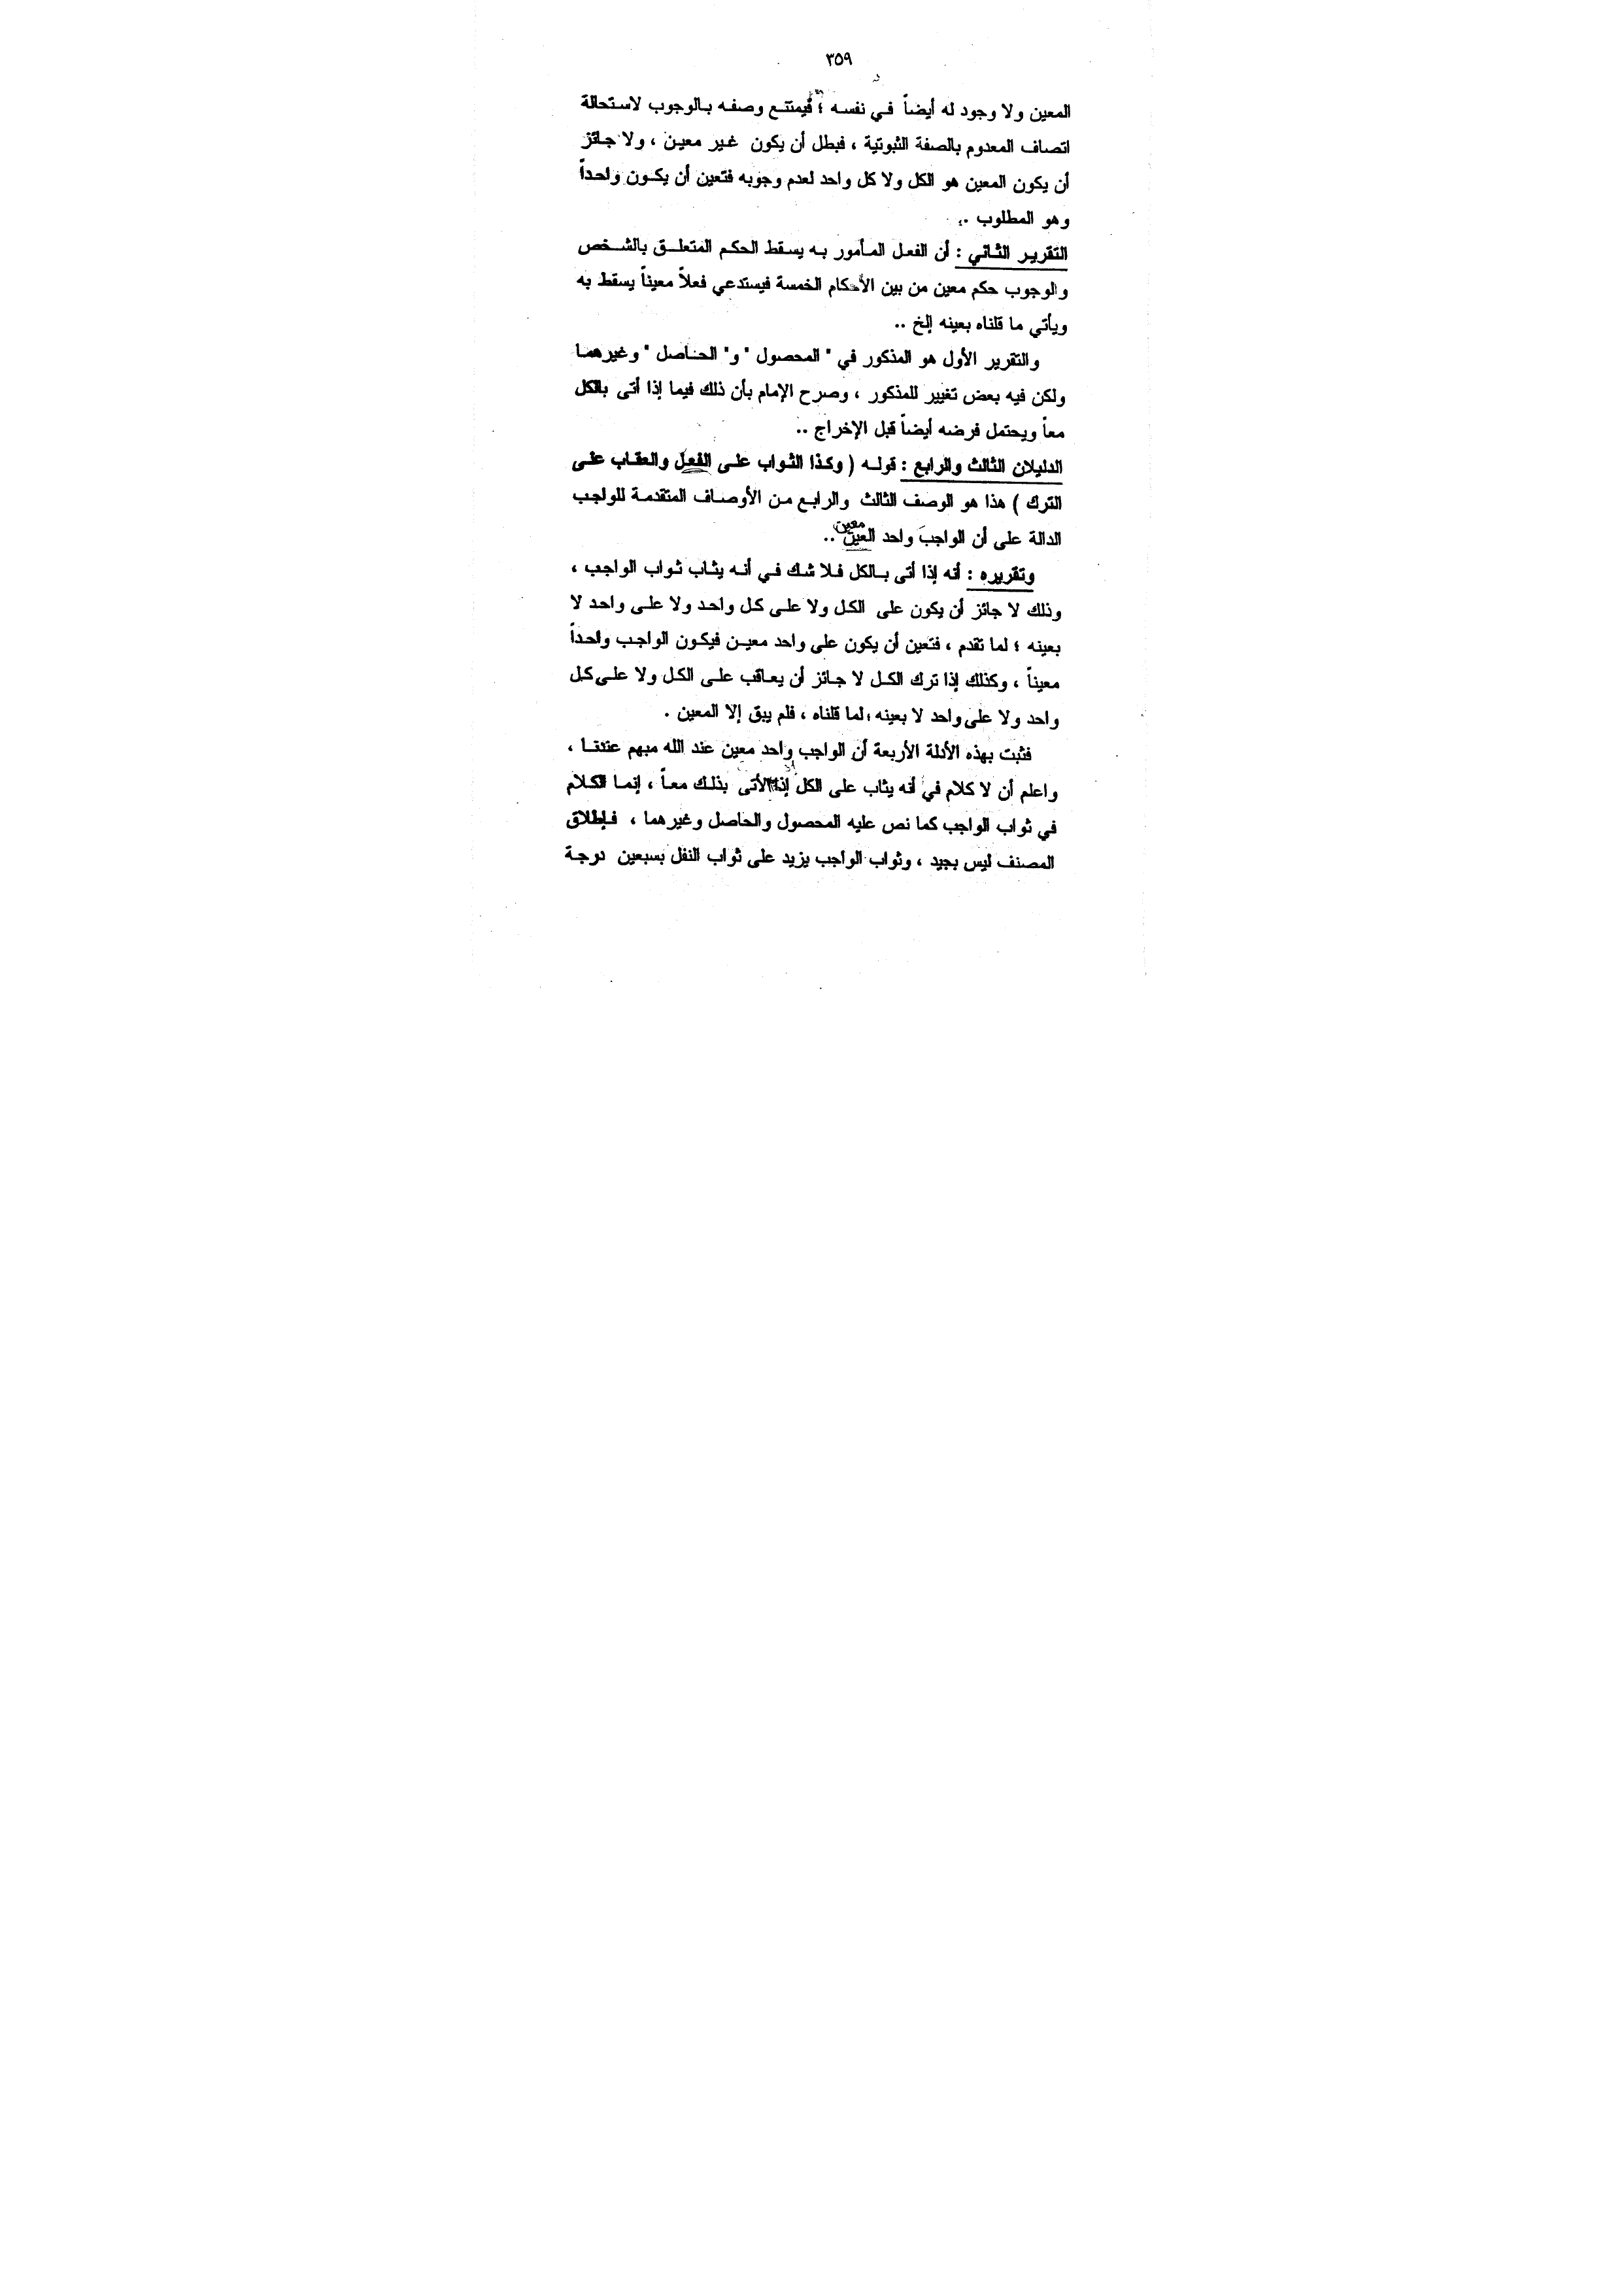 ٣٥٩
المعين ولا وجود له أيضاً في نفسه ؛ فيمتنع وصفه بالوجوب لاستحالة
اتصاف المعدوم بالصفة الثبوتية ، فبطل أن يكون غير معين ، ولا جائز
أن يكون المعين هو الكل ولا كل واحد لعدم وجوبه فتعين أن يكون واحداً
وهو المطلوب ..
التقرير الثاني : أن الفعل المأمور به يسقط الحكم المتعلق بالشخص
والوجوب حكم معين من بين الأحكام الخمسة فيستدعي فعلاً معيناً يسقط به
ويأتي ما قلناه بعينه إلخ ..
والتقرير الأول هو المذكور في " المحصول " و" الحاصل " وغيرهما
ولكن فيه بعض تغيير للمذكور ، وصرح الإمام بأن ذلك فيما إذا أتى بالكل
معاً ويحتمل فرضه أيضاً قبل الإخراج ..
الدليلان الثالث والرابع : قوله ( وكذا الثواب على الفعل والعقاب على
الترك ) هذا هو الوصف الثالث والرابع من الأوصاف المتقدمة للواجب
الدالة على أن الواجب واحد العين معين ..
وتقريره : أنه إذا أتى بالكل فلا شك في أنه يثاب ثواب الواجب ،
وذلك لا جائز أن يكون على الكل ولا على كل واحد ولا على واحد لا
بعينه ؛ لما تقدم ، فتعين أن يكون على واحد معين فيكون الواجب واحداً
معيناً ، وكذلك إذا ترك الكل لا جائز أن يعاقب على الكل ولا على كل
واحد ولا على واحد لا بعينه ؛ لما قلناه ، فلم يبق إلا المعين .
فثبت بهذه الأدلة الأربعة أن الواجب واحد معين عند الله مبهم عندنا ،
واعلم أن لا كلام في أنه يثاب على الكل إذا أتى بذلك معاً ، إنما الكلام
في ثواب الواجب كما نص عليه المحصول والحاصل وغيرهما ، فإطلاق
المصنف ليس بجيد ، وثواب الواجب يزيد على ثواب النفل بسبعين درجة